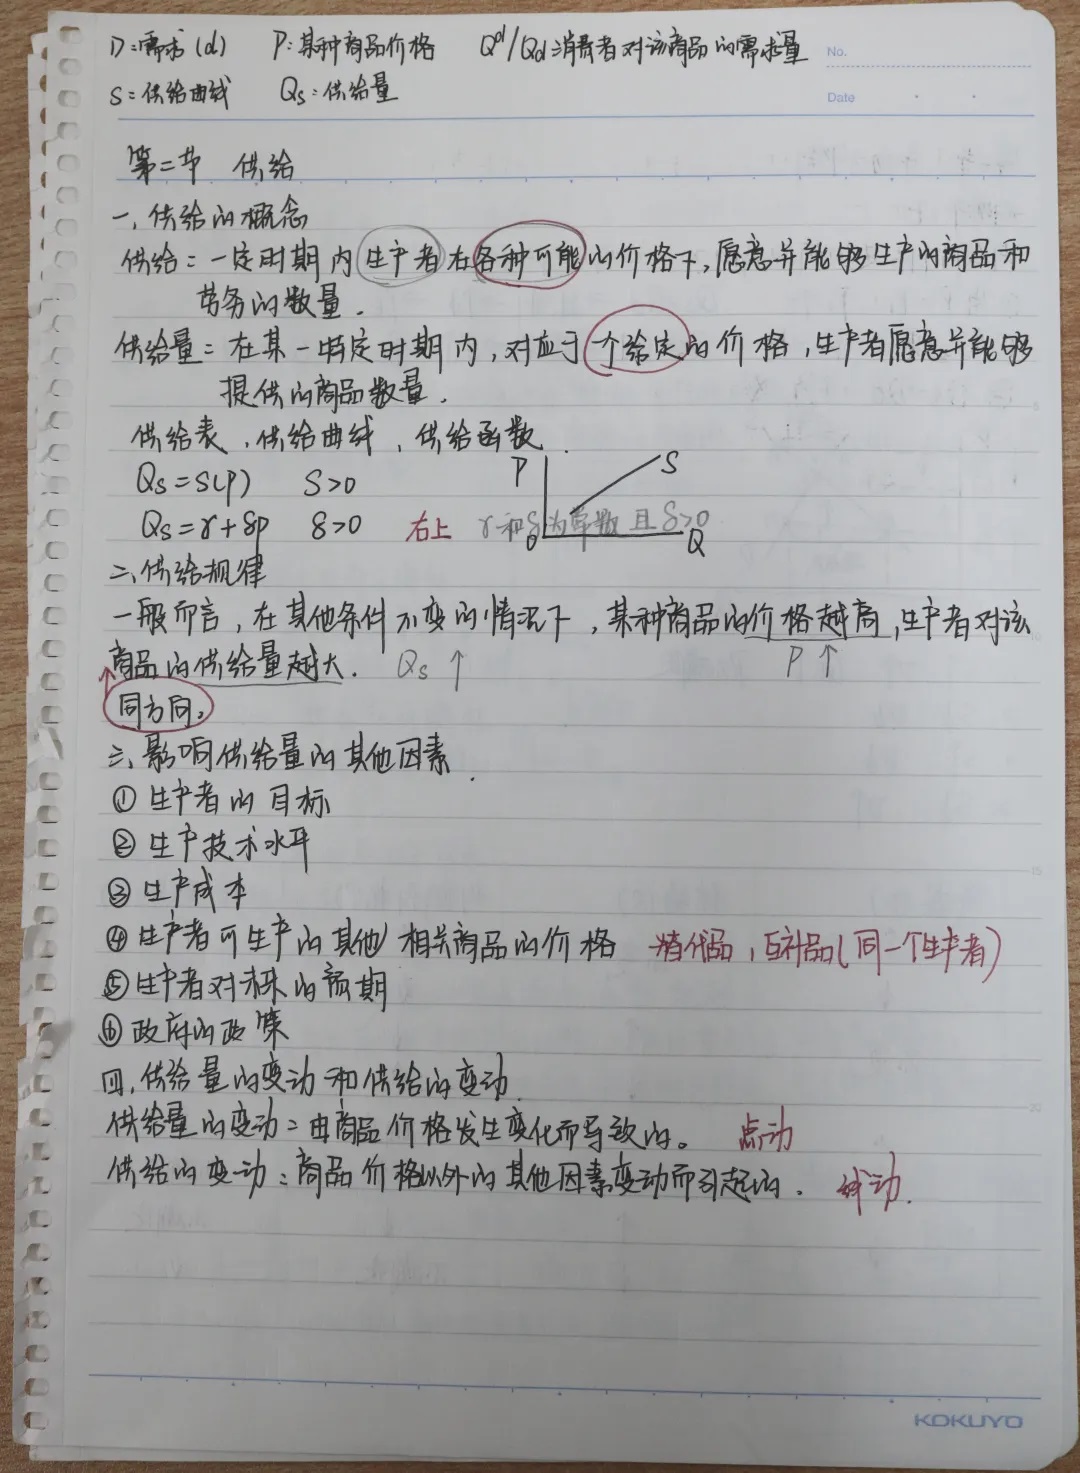 D:需求(d) P:某种商品价格 Qd/Qd:消费者对该商品的需求量
No.
S:供给曲线 Qs:供给量
Date
第二节 供给
一、供给的概念
供给:一定时期内生产者在各种可能的价格下,愿意并能够生产的商品和
劳务的数量.
供给量:在某一特定时期内,对应于个给定的价格,生产者愿意并能够
提供的商品数量.
供给表、供给曲线、供给函数.
P S
Qs=S(P) S>0
Qs=γ+δp δ>0 右上 γ和δ为常数且δ>0
O Q
二、供给规律
一般而言,在其他条件不变的情况下,某种商品的价格越高,生产者对该
商品的供给量越大. Qs↑ P↑
↑
同方向,
三、影响供给量的其他因素.
① 生产者的目标
② 生产技术水平
③ 生产成本
④ 生产者可生产的其他相关商品的价格 替代品,互补品(同一个生产者)
⑤ 生产者对未来的预期
⑥ 政府的政策
四、供给量的变动和供给的变动.
供给量的变动:由商品价格发生变化而导致的。 点动
供给的变动:商品价格以外的其他因素变动而引起的. 线动.
KOKUYO